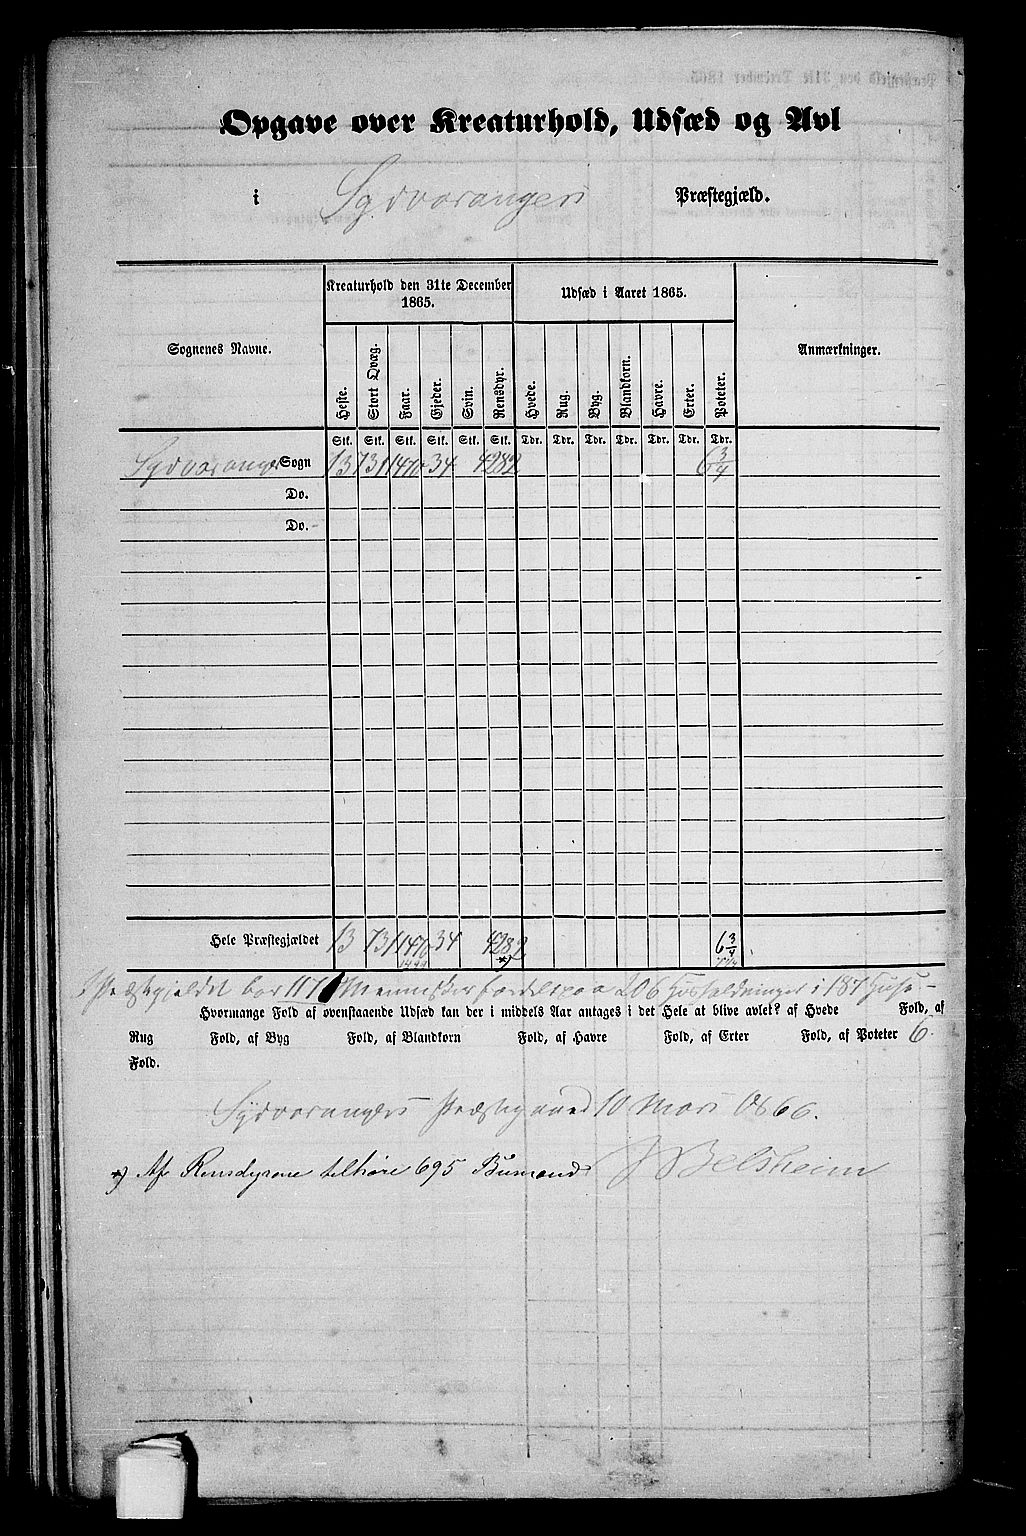 Opgave over Kreaturhold, Udsæd og Avl
i Sydvarangers Præstegjæld.
Sognenes Navne. Kreaturhold den 31te December 1865. Udsæd i Aaret 1865. Anmærkninger.
Heste. Stort Qvæg. Faar. Gjeder. Svin. Rensdyr. Hvede. Rug. Byg. Blandkorn. Havre. Erter. Poteter.
Stk. Stk. Stk. Stk. Stk. Stk. Tdr. Tdr. Tdr. Tdr. Tdr. Tdr. Tdr.
Sydvaranger Sogn 13 731 1470 34 4282 6 3/4
Do.
Do.
Hele Præstegjældet 13 731 1470 34 4282 6 3/4
*)
I Præstegjeldet bor Mennesker fordelt paa 206 Husholdninger i 187 Huse.
Hvormange Fold af ovenstaaende Udsæd kan der i middels Aar antages i det Hele at blive avlet? af Hvede Fold, af
Rug Fold, af Byg Fold, af Blandkorn Fold, af Havre Fold, af Erter Fold, af Poteter 6.
Fold.
Sydvarangers Præstegaard 10 Mars 1866.
JBelsheim
*) Af Rensdyrene tilhøre 695 Bumænd